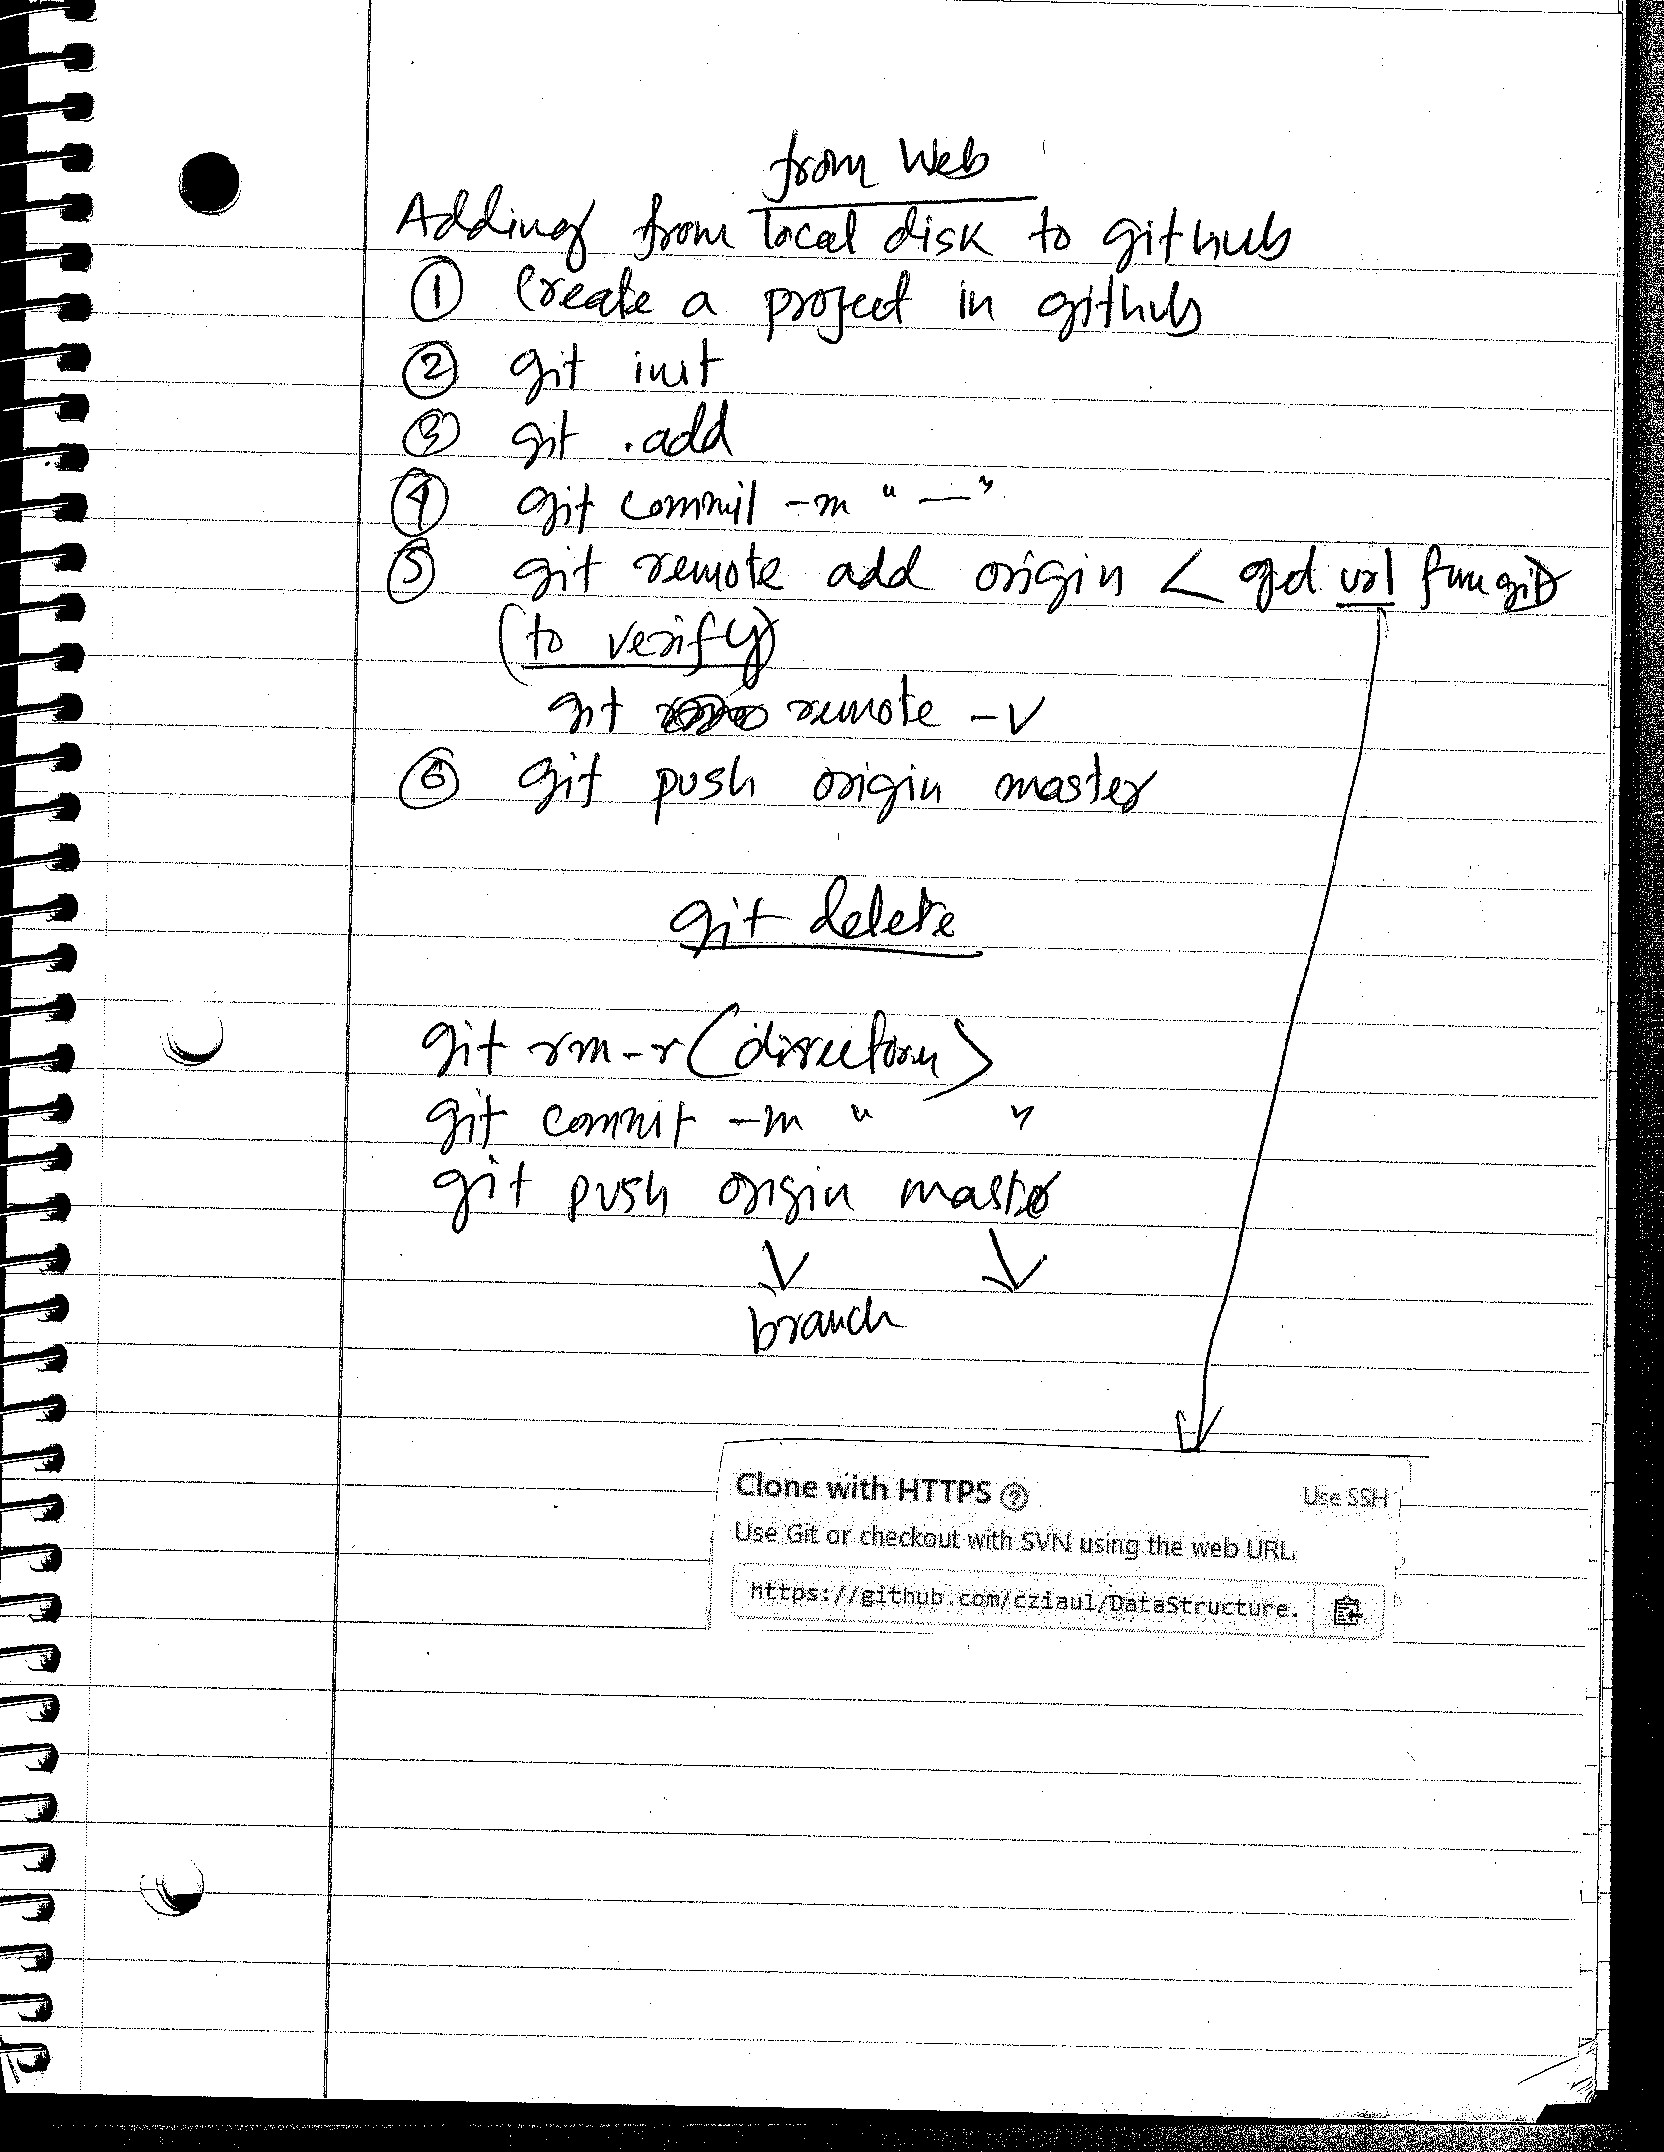 from Web
Adding from local disk to github
① Create a project in github
② git init
③ git .add
④ git commit -m " — "
⑤ git remote add origin < get url from git>
(to verify)
git remote -v
⑥ git push origin master
git delete
git rm -r (directory>
git commit -m " "
git push origin master
branch
Clone with HTTPS ?
Use SSH
Use Git or checkout with SVN using the web URL.
https://github.com/cziaul/DataStructure.